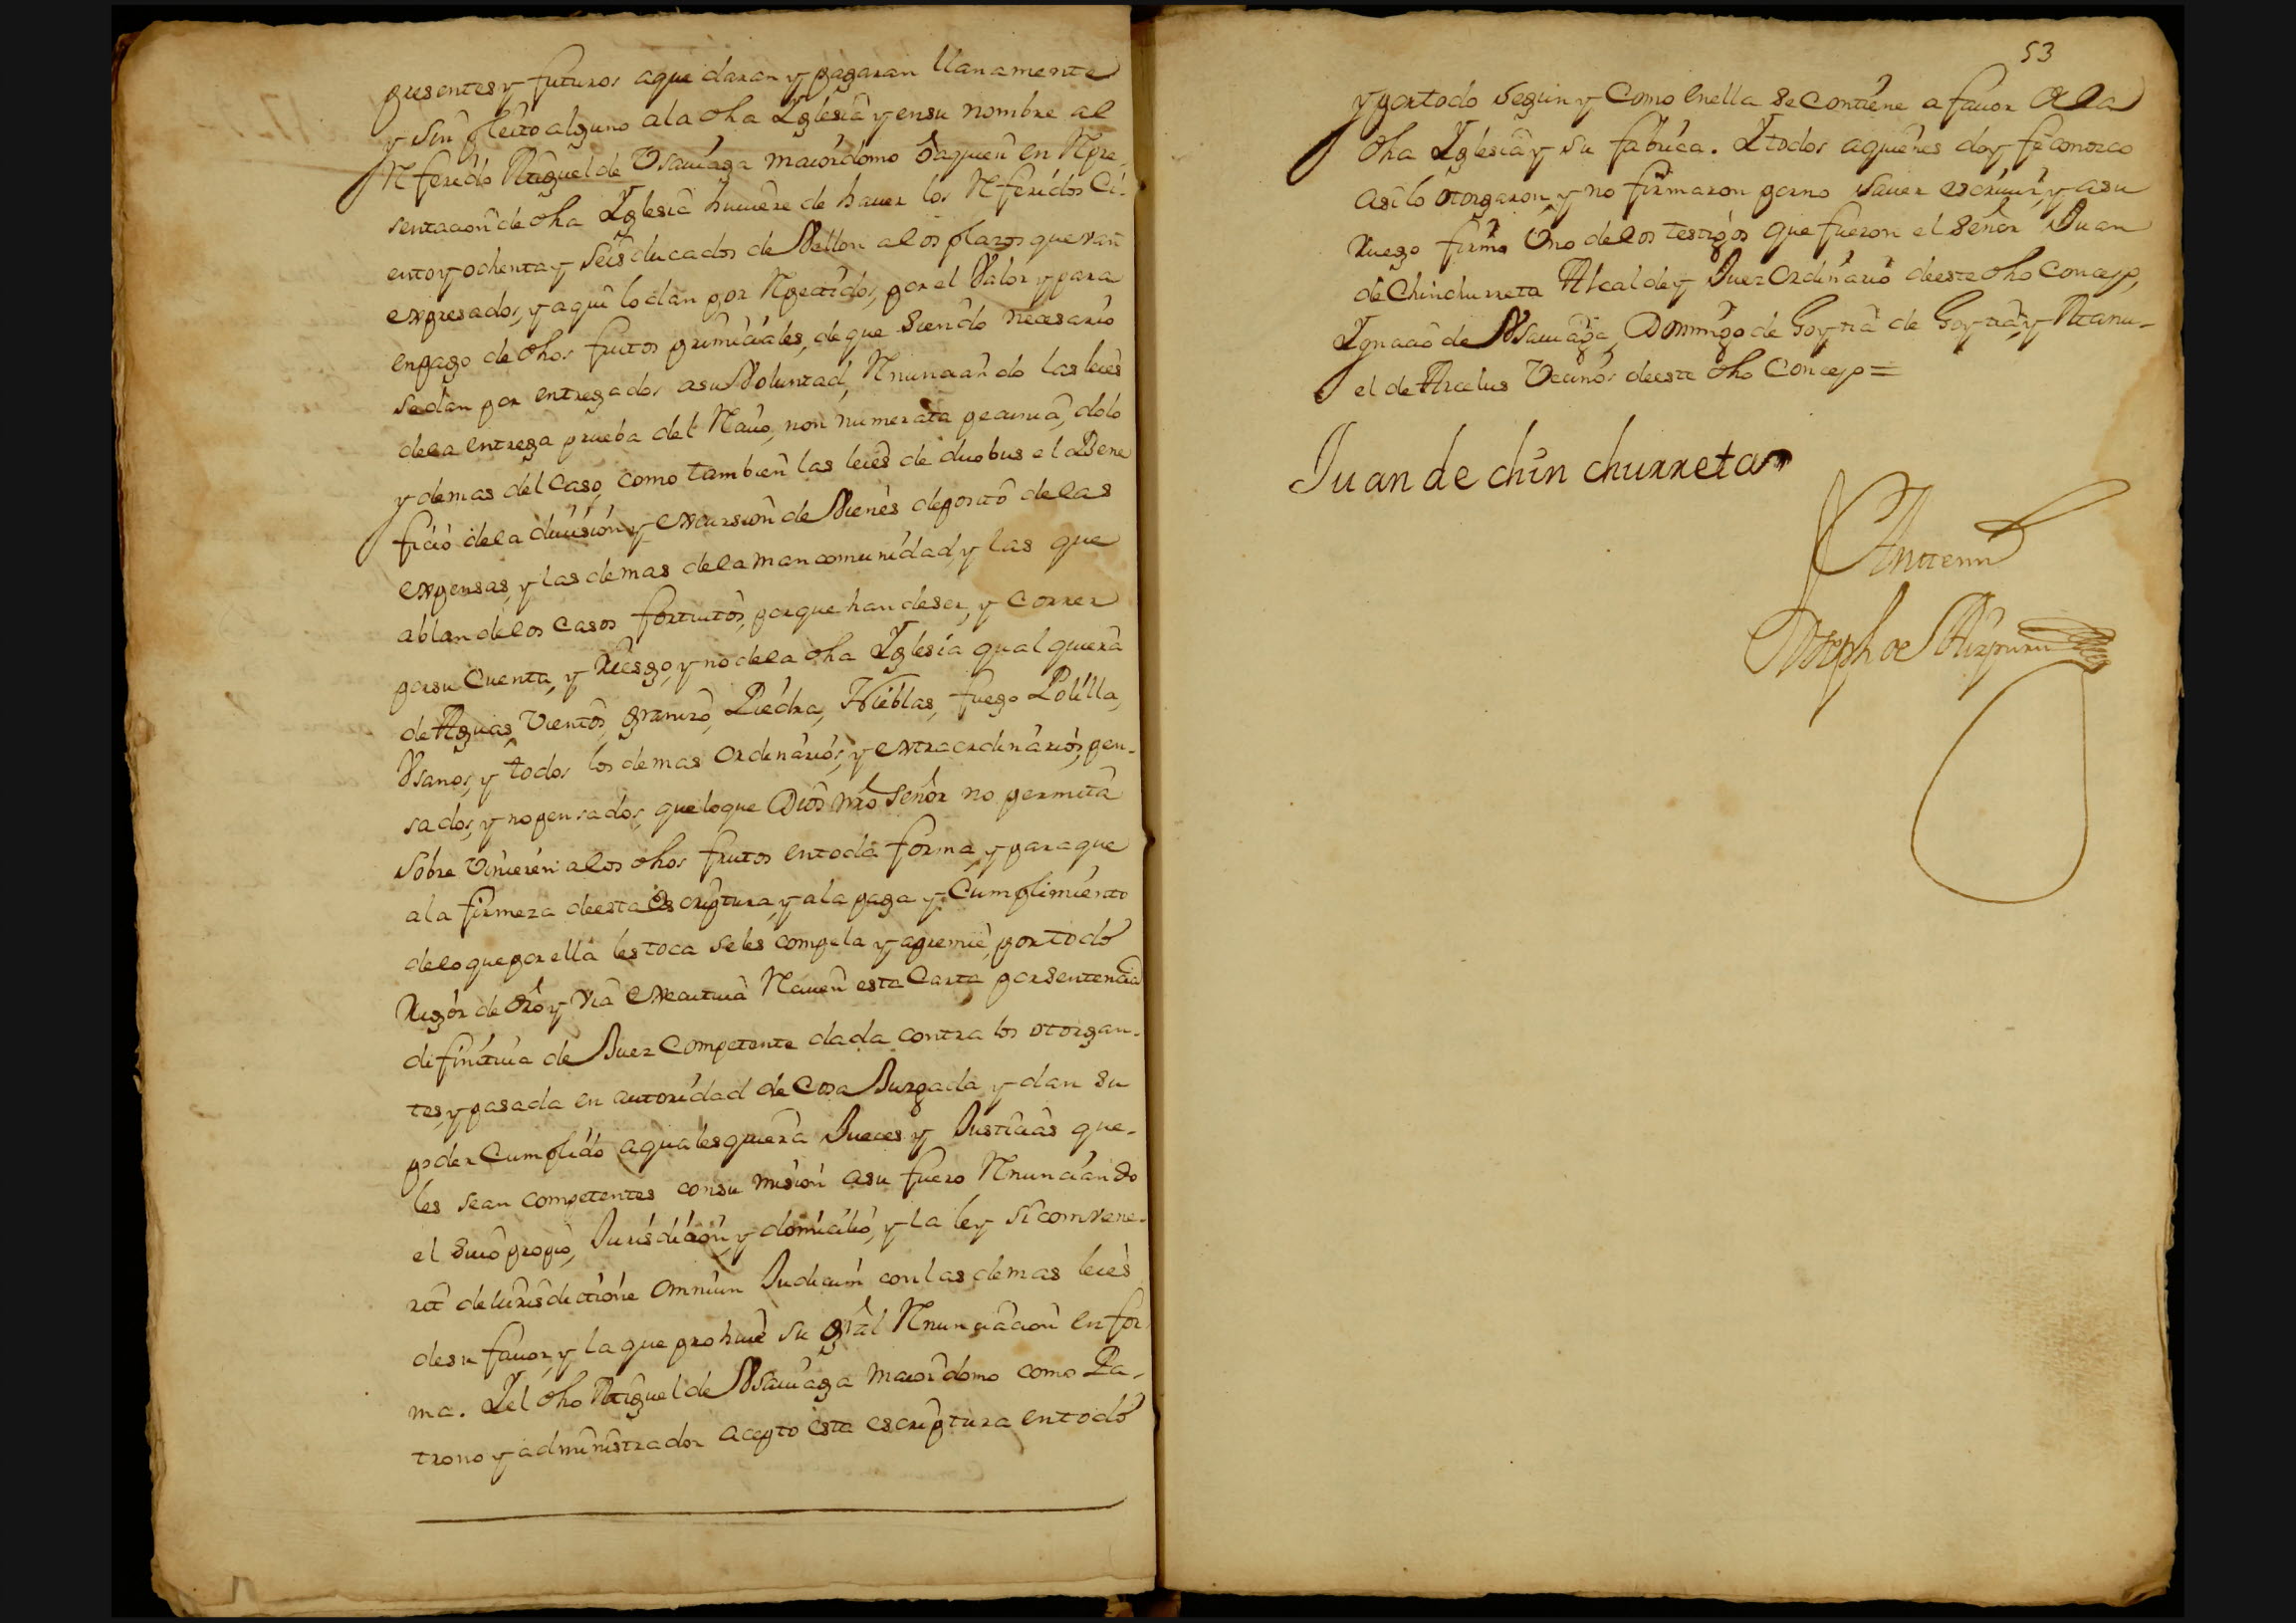 presentes y futuros a que daran y pagaran llanamente
y sin pleito alguno a la dha Yglesia y en su nombre al
Referido Miguel de Vsauiaga maiordomo o a quien en Repre-
sentacion de dha Yglesia huuiere de hauer los Referidos Ci-
ento y ochenta y seis ducados de Vellon a los plazos que van
expresados, y aqui lo dan por Repetidos, por el Valor y para
en pago de dhos frutos primiciales, de que siendo necesario
se dan por entregados a su Voluntad, Renunciando las leies
de la entrega prueba del Reciuo, non numerata pecunia, dolo
y demas del Caso, como tambien las leies de duobus el Bene
ficio de la diuision y excursion de Vienes deposito de las
expensas, y las demas de la mancomunidad, y las que
ablan de los Casos fortuitos, porque han de ser, y Correr
por su Cuenta, y Riesgo, y no de la dha Yglesia qualquiera
de Aguas, Vientos, granizo, Piedra, Nieblas, fuego Polilla,
Vsanos, y todos los demas ordinarios, y extraordinarios, pen-
sados, y no pensados, que lo que Dios nro señor no permita
sobre Vinieren a los dhos frutos en toda forma, y para que
a la firmeza de esta Escriptura, y a la paga y Cumplimiento
de lo que por ella les toca se les compela y apremie, por todo
Rigor de dro y via executiua Reciuen esta Carta por sentencia
difinitiua de Juez Competente dada contra los otorgan-
tes, y pasada en autoridad de Cosa Juzgada y dan su
poder Cumplido a qualesquiera Jueces y Justicias que-
les sean competentes con su mision a su fuero Renunciando
el suio propio, Jurisdicion, y domicilio, y la ley si comvene-
rit de iurisdictione omniun Judicum con las demas leies
de su fauor, y la que prohiue su gral Renunciacion en for
ma. Y el dho Miguel de Vsauiaga maiordomo como Pa-
trono y administrador acepto esta escriptura en todo
53
y por todo segun y Como en ella se Contiene a fauor de la
dha Yglesia y su fabrica. Y todos a quienes doy fe conozco
asi lo otorgaron, y no firmaron por no sauer escriuir, y a su
Ruego firmo Vno de los testigos que fueron el señor Juan
de Chinchurreta Alcalde y Juez ordinario de este dho Concejo,
Ygnacio de Vsauiaga, Domingo de Goytia de Goytia, y Manu-
el de Arcelus Vecinos de este dho Concejo =
Juan de chin churreta
Ante mi
Joseph de Aizpuru